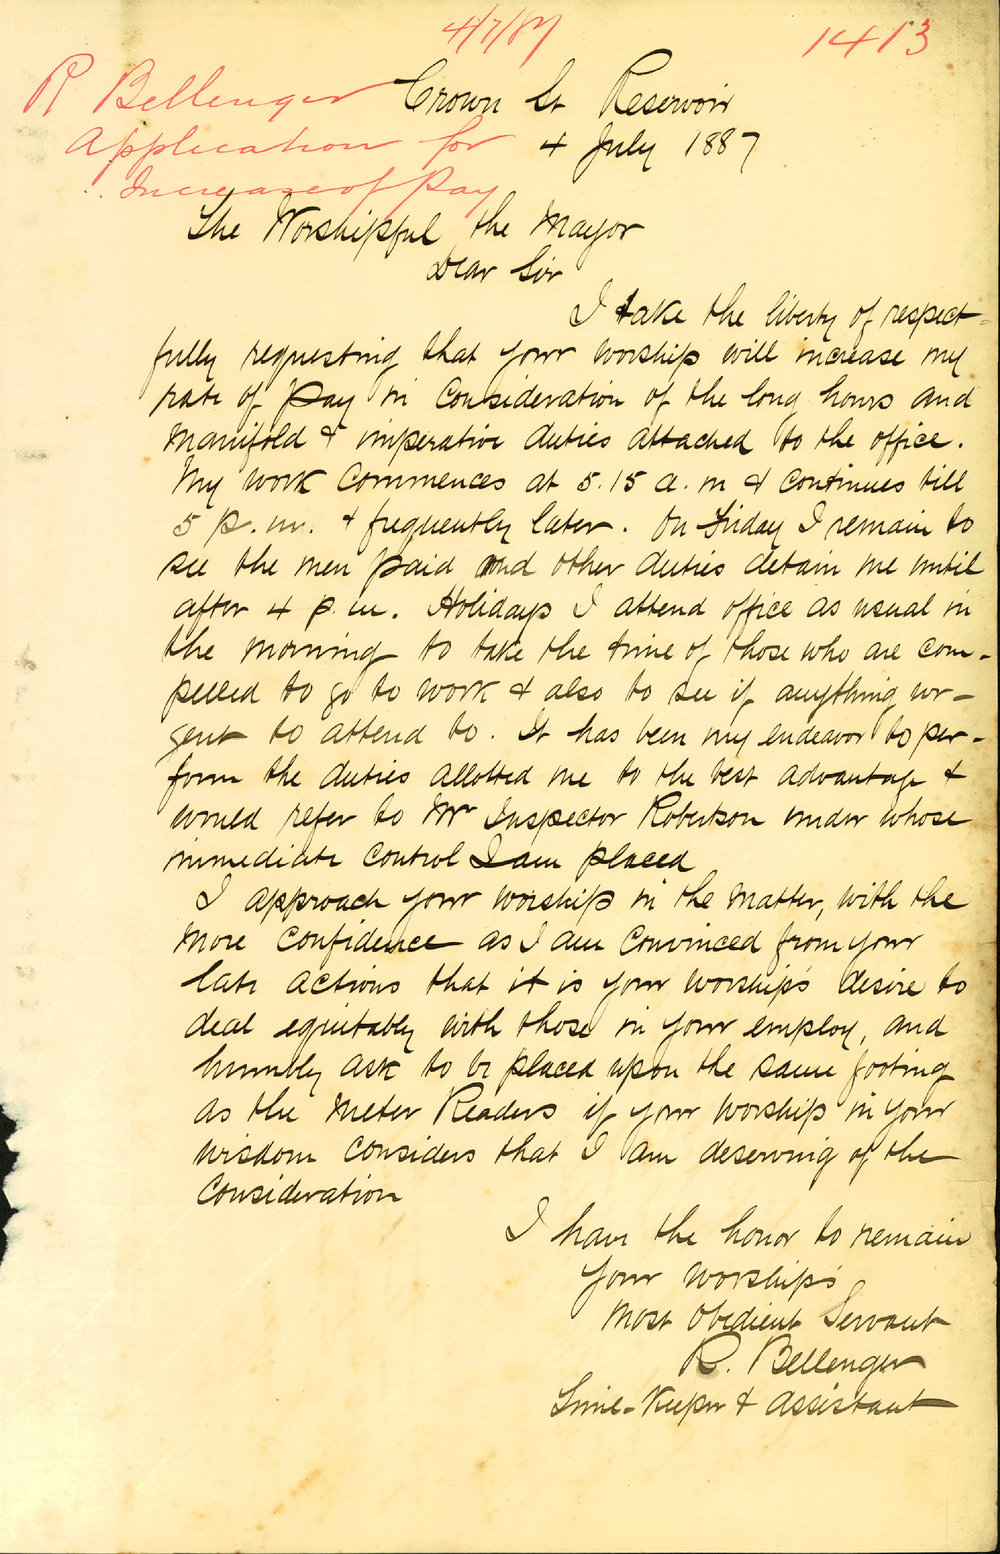 4/7/87
1413
R Bellenger
Application for
Increase of Pay
Crown St Reservoir
4 July 1887
The Worshipful the Mayor
Dear Sir
I take the liberty of respect-
fully requesting that your worship will increase my
rate of pay in consideration of the long hours and
manifold & imperative duties attached to the office.
My work commences at 5.15 a.m & continues till
5 p.m. & frequently later. On Friday I remain to
see the men paid and other duties detain me until
after 4 p.m. Holidays I attend office as usual in
the morning to take the time of those who are com-
pelled to go to work & also to see if anything ur-
gent to attend to. It has been my endeavor to per-
form the duties allotted me to the best advantage &
would refer to Mr Inspector Robertson under whose
immediate control I am placed
I approach your worship in the matter, with the
more confidence as I am convinced from your
late actions that it is your worship's desire to
deal equitably with those in your employ, and
humbly ask to be placed upon the same footing
as the Meter Readers if your worship in your
wisdom considers that I am deserving of the
consideration
I have the honor to remain
Your worship's
Most Obedient Servant
R. Bellenger
Time-Keeper & Assistant